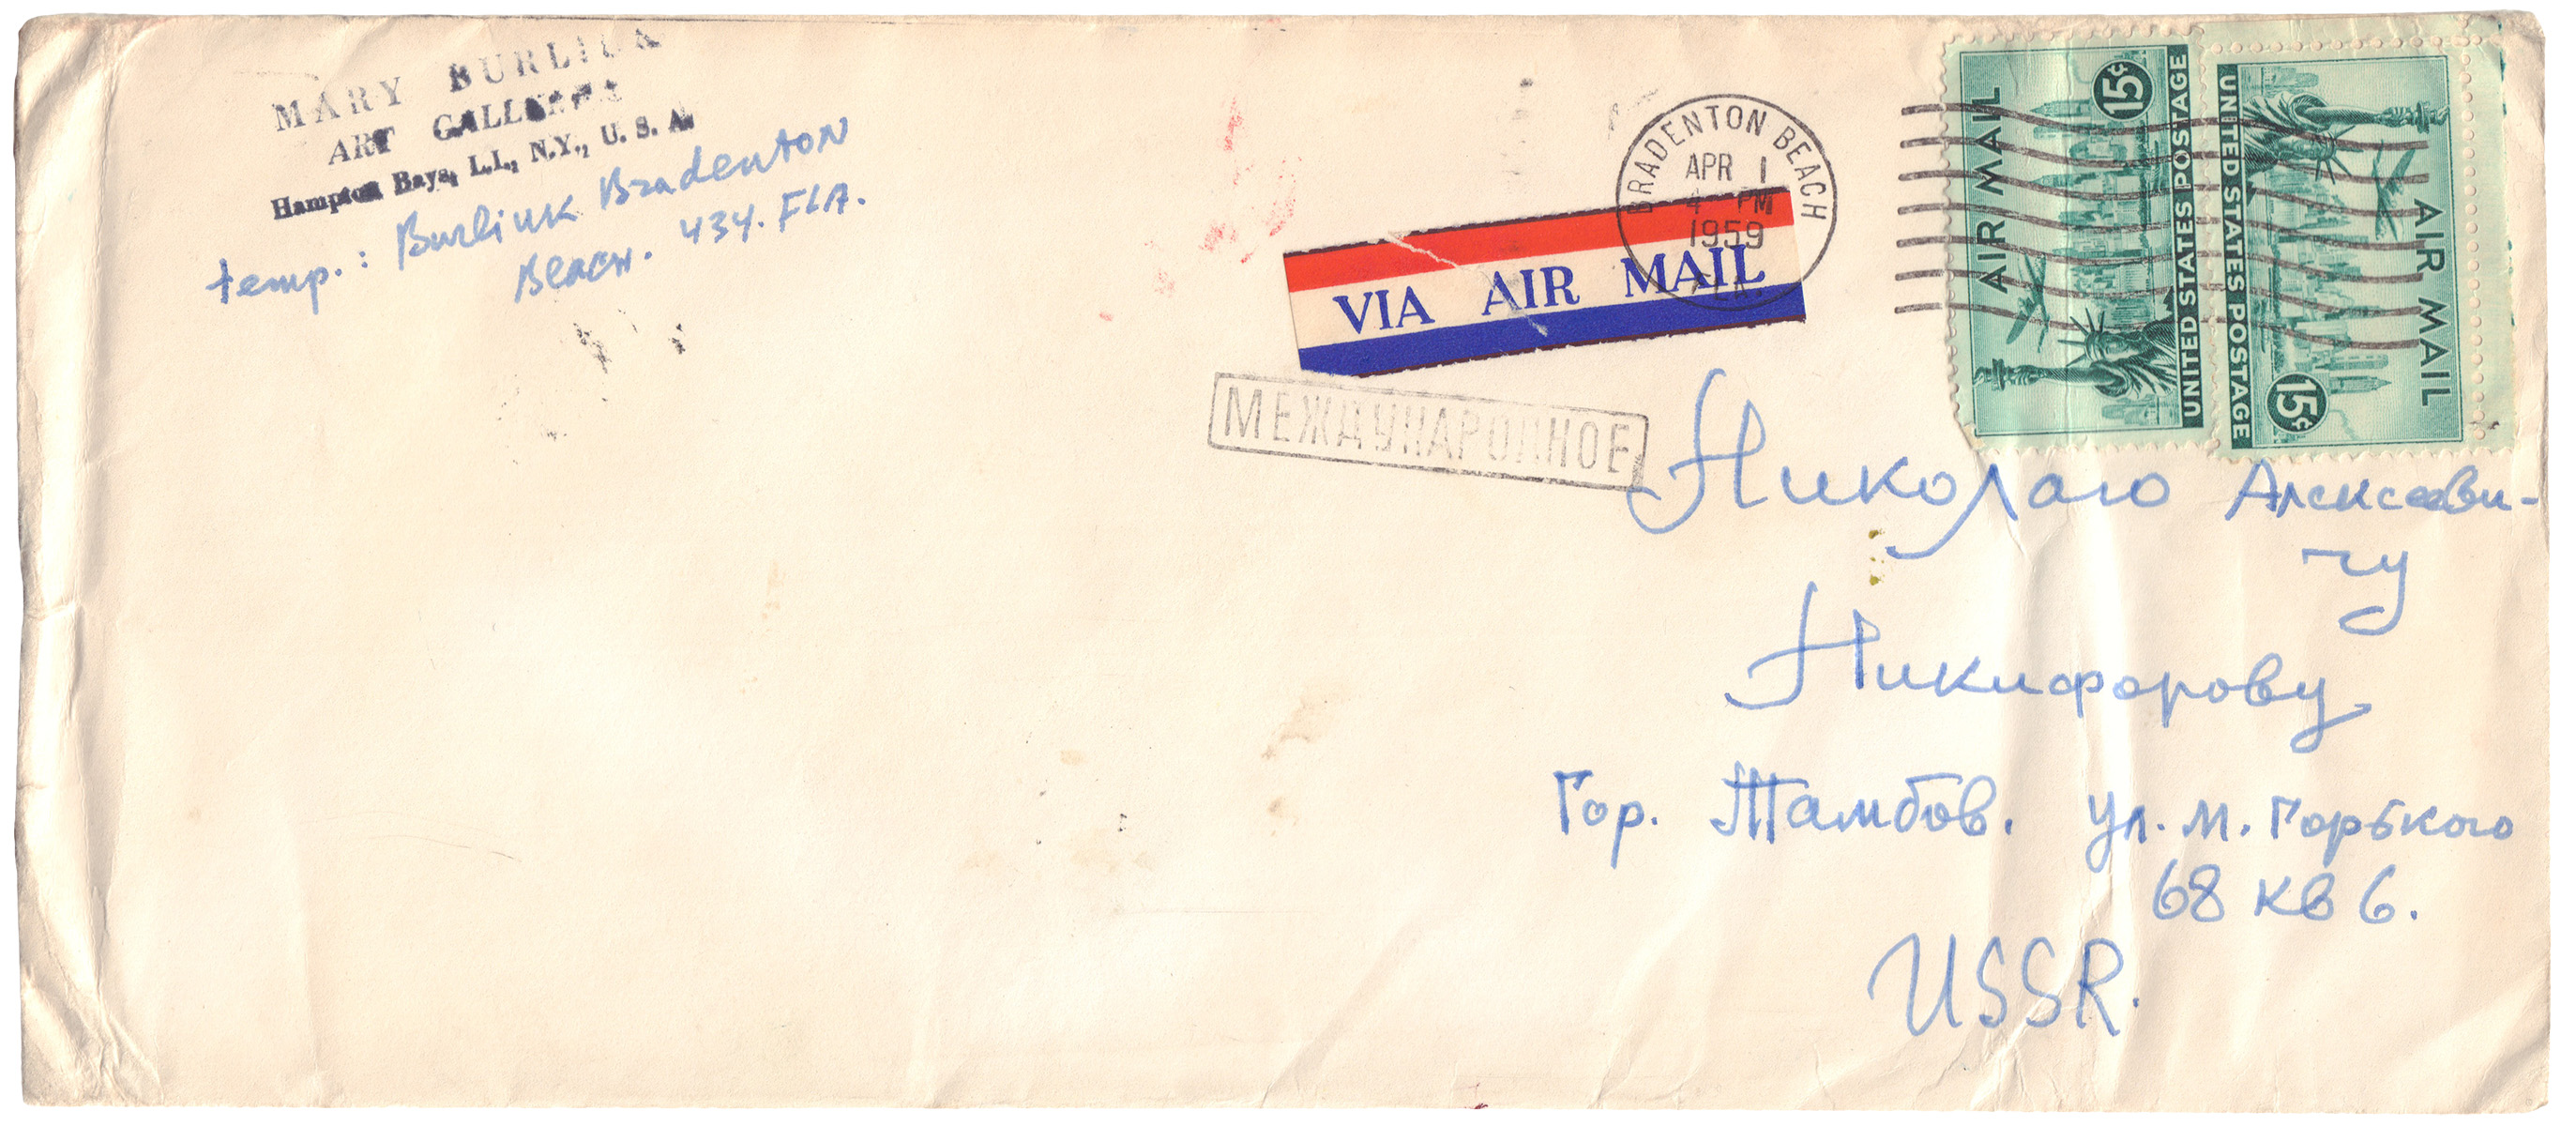 MARY BURLIUK
ART GALLERY
Hampton Bays, L.I., N.Y., U. S. A.
temp.: Burliuk Bradenton
Beach. 434. FLA.
BRADENTON BEACH
APR 1
4 PM
1959
FLA.
VIA AIR MAIL
МЕЖДУНАРОДНОЕ
AIR MAIL
15¢
UNITED STATES POSTAGE
UNITED STATES POSTAGE
15¢
AIR MAIL
Николаю Алексееви-
чу
Никифорову
Гор. Тамбов. ул. М. Горького
68 кв 6.
USSR.